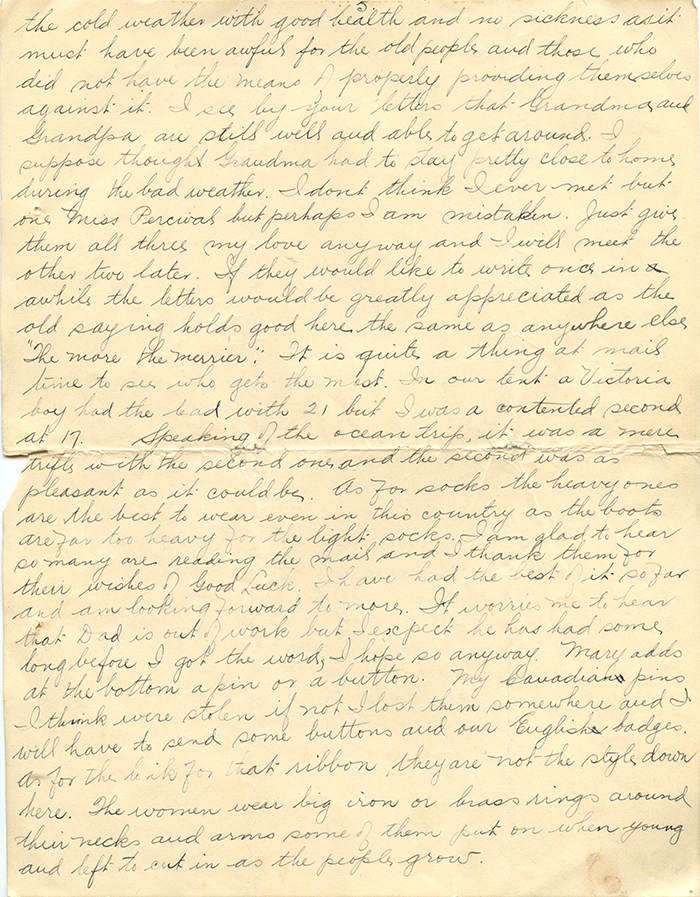 the cold weather with good health and no sickness as it
must have been awful for the old people and those who
did not have the means of properly providing themselves
against it. I see by your letters that Grandma and
Grandpa are still well and able to get around. I
suppose though Grandma had to stay pretty close to home
during the bad weather. I dont think I ever met but
one Miss Percival but perhaps I am mistaken. Just give
them all three my love anyway and I will meet the
other two later. If they would like to write once in a
awhile the letters would be greatly appreciated as the
old saying holds good here the same as anywhere else
"The more the merrier". It is quite a thing at mail
time to see who gets the most. In our tent a Victoria
boy had the lead with 21 but I was a contented second
at 17. Speaking of the ocean trip, it was a mere
trifle with the second one and the second was as
pleasant as it could be. As for socks the heavy ones
are the best to wear even in this country as the boots
are far too heavy for the light socks. I am glad to hear
so many are reading the mail and I thank them for
their wishes of Good Luck. I have had the best of it so far
and am looking forward to more. It worries me to hear
that Dad is out of work but I excpect he has had some
long before I got the word, I hope so anyway. Mary adds
at the bottom a pin or a button. My Canadian pins
I think were stolen if not I lost them somewhere and I
will have to send some buttons and our English badges.
As for the for that ribbon they are not the style down
here. The women wear big iron or brass rings around
their necks and arms some of them put on when young
and left to cut in as the people grow.